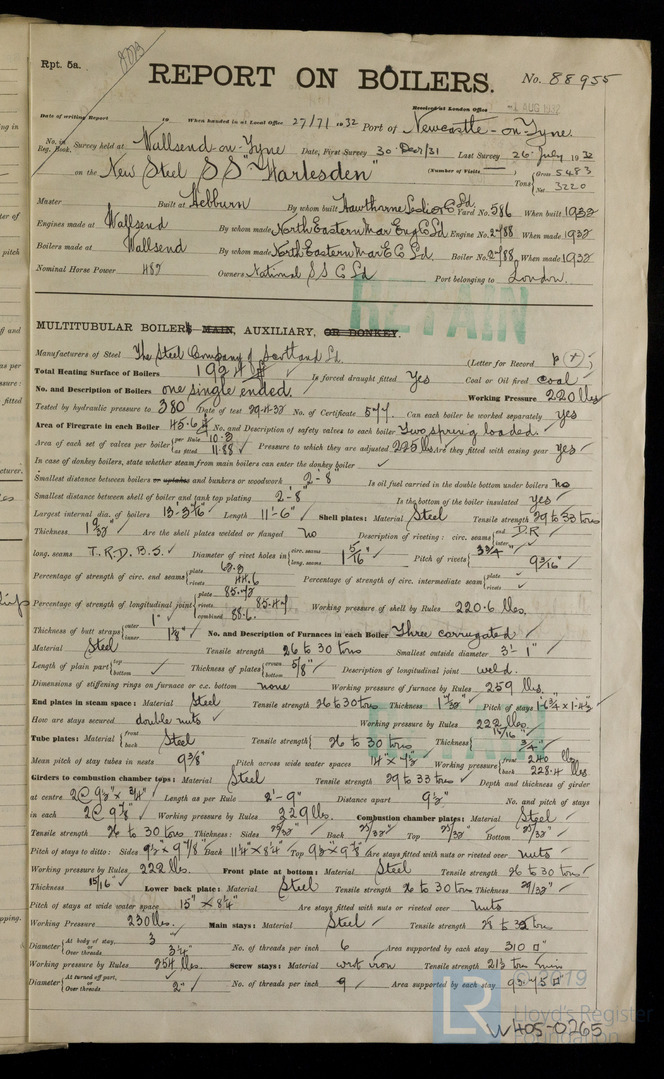 Rpt. 5a.
REPORT ON BOILERS. No. 88955
Received at London Office -1 AUG 1932
Date of writing Report 19 When handed in at Local Office 27/7/1932 Port of Newcastle-on-Tyne.
No. in Reg. Book. Survey held at Wallsend-on-Tyne Date, First Survey 30 Decr/31 Last Survey 26 July 1932
on the New Steel S S "Harlesden" (Number of Visits ) Tons { Gross 5483 Net 3220
Master Built at Hebburn By whom built Hawthorne Leslie & Co Ld Yard No. 586 When built 1932
Engines made at Wallsend By whom made North Eastern Mar Eng Co Ld Engine No. 2788 When made 1932
Boilers made at Wallsend By whom made North Eastern Mar E Co Ld. Boiler No. 2788 When made 1932
Nominal Horse Power 487 Owners National S S Co Ld Port belonging to London.
RETAIN
MULTITUBULAR BOILERS MAIN, AUXILIARY, OR DONKEY.
Manufacturers of Steel The Steel Company of Scotland Ld. (Letter for Record p(r);
Total Heating Surface of Boilers 1924 Is forced draught fitted Yes Coal or Oil fired coal
No. and Description of Boilers one single ended. Working Pressure 220 lbs
Tested by hydraulic pressure to 380 Date of test 29.4.32 No. of Certificate 577. Can each boiler be worked separately yes
Area of Firegrate in each Boiler 45.6 No. and Description of safety valves to each boiler Two spring loaded.
Area of each set of valves per boiler { per Rule 10.8 as fitted 11.88 Pressure to which they are adjusted 225 lbs Are they fitted with easing gear yes
In case of donkey boilers, state whether steam from main boilers can enter the donkey boiler
Smallest distance between boilers or uptakes and bunkers or woodwork 2'-8" Is oil fuel carried in the double bottom under boilers no
Smallest distance between shell of boiler and tank top plating 2'-8" Is the bottom of the boiler insulated yes
Largest internal dia. of boilers Length 11'-6" Shell plates: Material Steel Tensile strength 29 to 33 tons
Thickness Are the shell plates welded or flanged no Description of riveting: circ. seams { end D.R inter.
long. seams T.R.D.B.S. Diameter of rivet holes in { circ. seams long. seams 1 5/16" Pitch of rivets { 3 3/4" 9 3/16"
Percentage of strength of circ. end seams { plate rivets 44.6 Percentage of strength of circ. intermediate seam { plate rivets
Percentage of strength of longitudinal joint { plate rivets 85.47 combined 88.6. Working pressure of shell by Rules 220.6 lbs.
Thickness of butt straps { outer 1" inner 1 1/8" No. and Description of Furnaces in each Boiler Three corrugated
Material Steel Tensile strength 26 to 30 tons Smallest outside diameter 3'-1"
Length of plain part { top bottom Thickness of plates { crown bottom 5/8" Description of longitudinal joint weld.
Dimensions of stiffening rings on furnace or c.c. bottom none Working pressure of furnace by Rules 259 lbs.
End plates in steam space: Material Steel Tensile strength 26 to 30 tons Thickness Pitch of stays
How are stays secured double nuts Working pressure by Rules 222 lbs
Tube plates: Material { front back Steel Tensile strength { 26 to 30 tons Thickness { 15/16" 3/4"
RETAIN
Mean pitch of stay tubes in nests 9 3/8" Pitch across wide water spaces Working pressure { front 240 lbs back 228.4 lbs
Girders to combustion chamber tops: Material Steel Tensile strength 29 to 33 tons Depth and thickness of girder
at centre 2@ 9 1/2" x 3/4" Length as per Rule 2'-9" Distance apart 9 1/2" No. and pitch of stays
in each 2@ 9 7/8" Working pressure by Rules 229 lbs. Combustion chamber plates: Material Steel
Tensile strength 26 to 30 tons Thickness: Sides 25/32" Back 25/32" Top 25/32" Bottom 25/32"
Pitch of stays to ditto: Sides 9 1/2" x 9 7/8" Back 11 1/4" x 8 1/4" Top 9 1/2" x 9 7/8" Are stays fitted with nuts or riveted over nuts
Working pressure by Rules 222 lbs. Front plate at bottom: Material Steel Tensile strength 26 to 30 tons
Thickness 15/16" Lower back plate: Material Steel Tensile strength 26 to 30 tons Thickness 29/32"
Pitch of stays at wide water space 15" x 8 1/4" Are stays fitted with nuts or riveted over nuts
Working Pressure 230 lbs. Main stays: Material Steel Tensile strength
Diameter { At body of stay, 3 or Over threads 3 1/4" No. of threads per inch 6 Area supported by each stay 310 □"
Working pressure by Rules 254 lbs. Screw stays: Material wrt iron Tensile strength 21½ tons min
Diameter { At turned off part, or Over threads 2" No. of threads per inch 9 Area supported by each stay 93.75 □"
© 2019
LR Lloyd's Register
Foundation
W405-0265